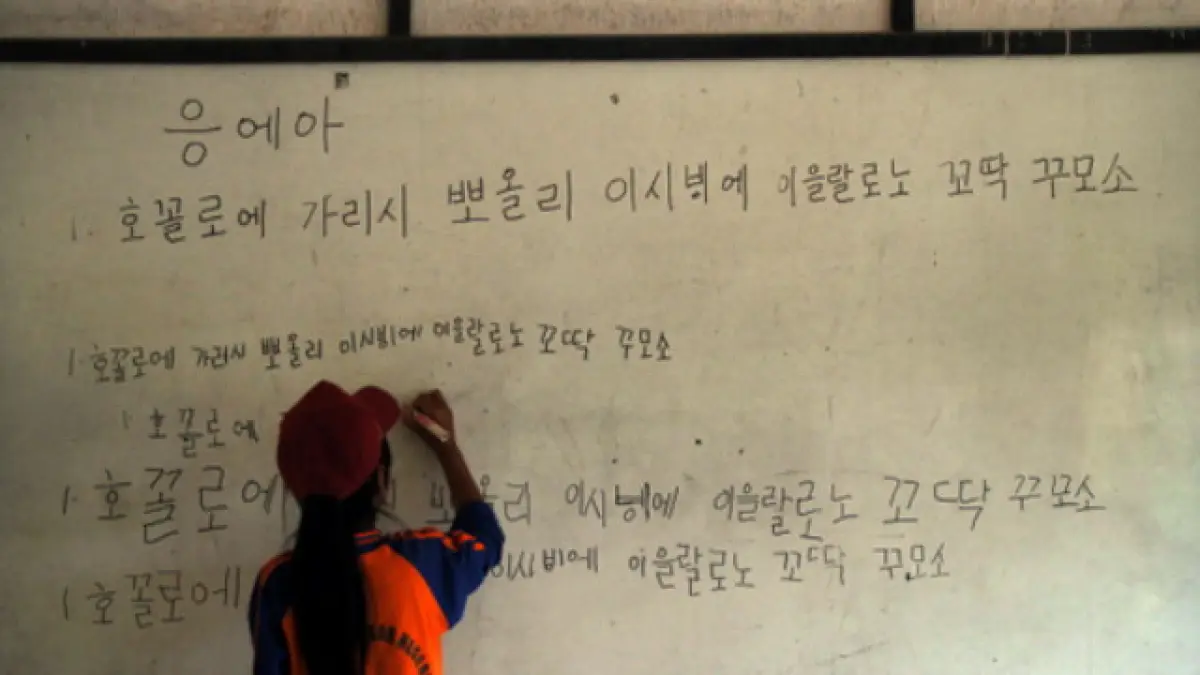 응에아
1. 호꼴로에 가리시 뽀올리 이시벵에 이을랄로노 꼬딱 꾸모소
1. 호꼴로에 가리시 뽀올리 이시비에 이을랄로노 꼬딱 꾸모소
1 호꼴로에
1. 호꼴로에 올리 이시벵에 이을랄로노 꼬딱 꾸모소
1 호꼴로에 이시비에 이을랄로노 꼬딱 꾸모소